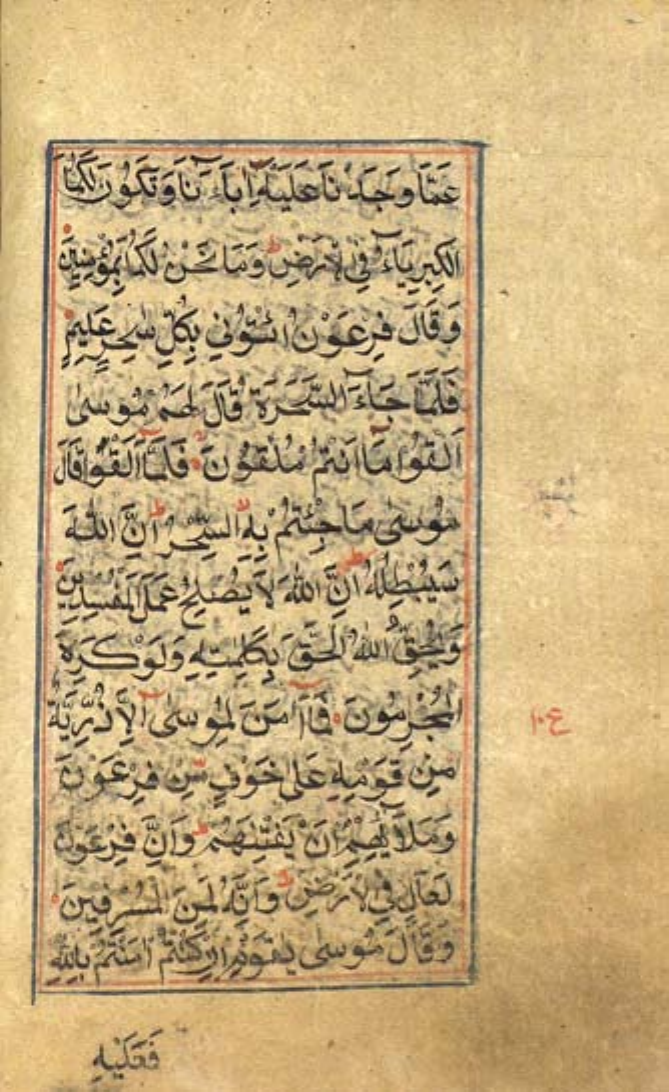 عَمَّا وَجَدْنَا عَلَيْهِ اٰبَاءَنَا وَتَكُوْنَ لَكُمَا
الْكِبْرِيَاءُ فِى الْاَرْضِ ط وَمَا نَحْنُ لَكُمَا بِمُؤْمِنِيْنَ
وَقَالَ فِرْعَوْنُ ائْتُوْنِي بِكُلِّ سٰحِرٍ عَلِيْمٍ
فَلَمَّا جَاءَ السَّحَرَةُ قَالَ لَهُمْ مُوْسٰى
اَلْقُوْا مَا اَنْتُمْ مُلْقُوْنَ فَلَمَّا اَلْقَوْا قَالَ
مُوْسٰى مَا جِئْتُمْ بِهِ السِّحْرُ ط اِنَّ اللّٰهَ
سَيُبْطِلُهُ ط اِنَّ اللّٰهَ لَا يُصْلِحُ عَمَلَ الْمُفْسِدِيْنَ
وَيُحِقُّ اللّٰهُ الْحَقَّ بِكَلِمٰتِهِ وَلَوْ كَرِهَ
الْمُجْرِمُوْنَ فَمَا اٰمَنَ لِمُوْسٰى اِلَّا ذُرِّيَّةٌ
مِنْ قَوْمِهِ عَلٰى خَوْفٍ مِّنْ فِرْعَوْنَ
وَمَلَا۟ئِهِمْ اَنْ يَفْتِنَهُمْ ط وَاِنَّ فِرْعَوْنَ
لَعَالٍ فِى الْاَرْضِ وَاِنَّهُ لَمِنَ الْمُسْرِفِيْنَ
وَقَالَ مُوْسٰى يٰقَوْمِ اِنْ كُنْتُمْ اٰمَنْتُمْ بِاللّٰهِ
فَعَلَيْهِ